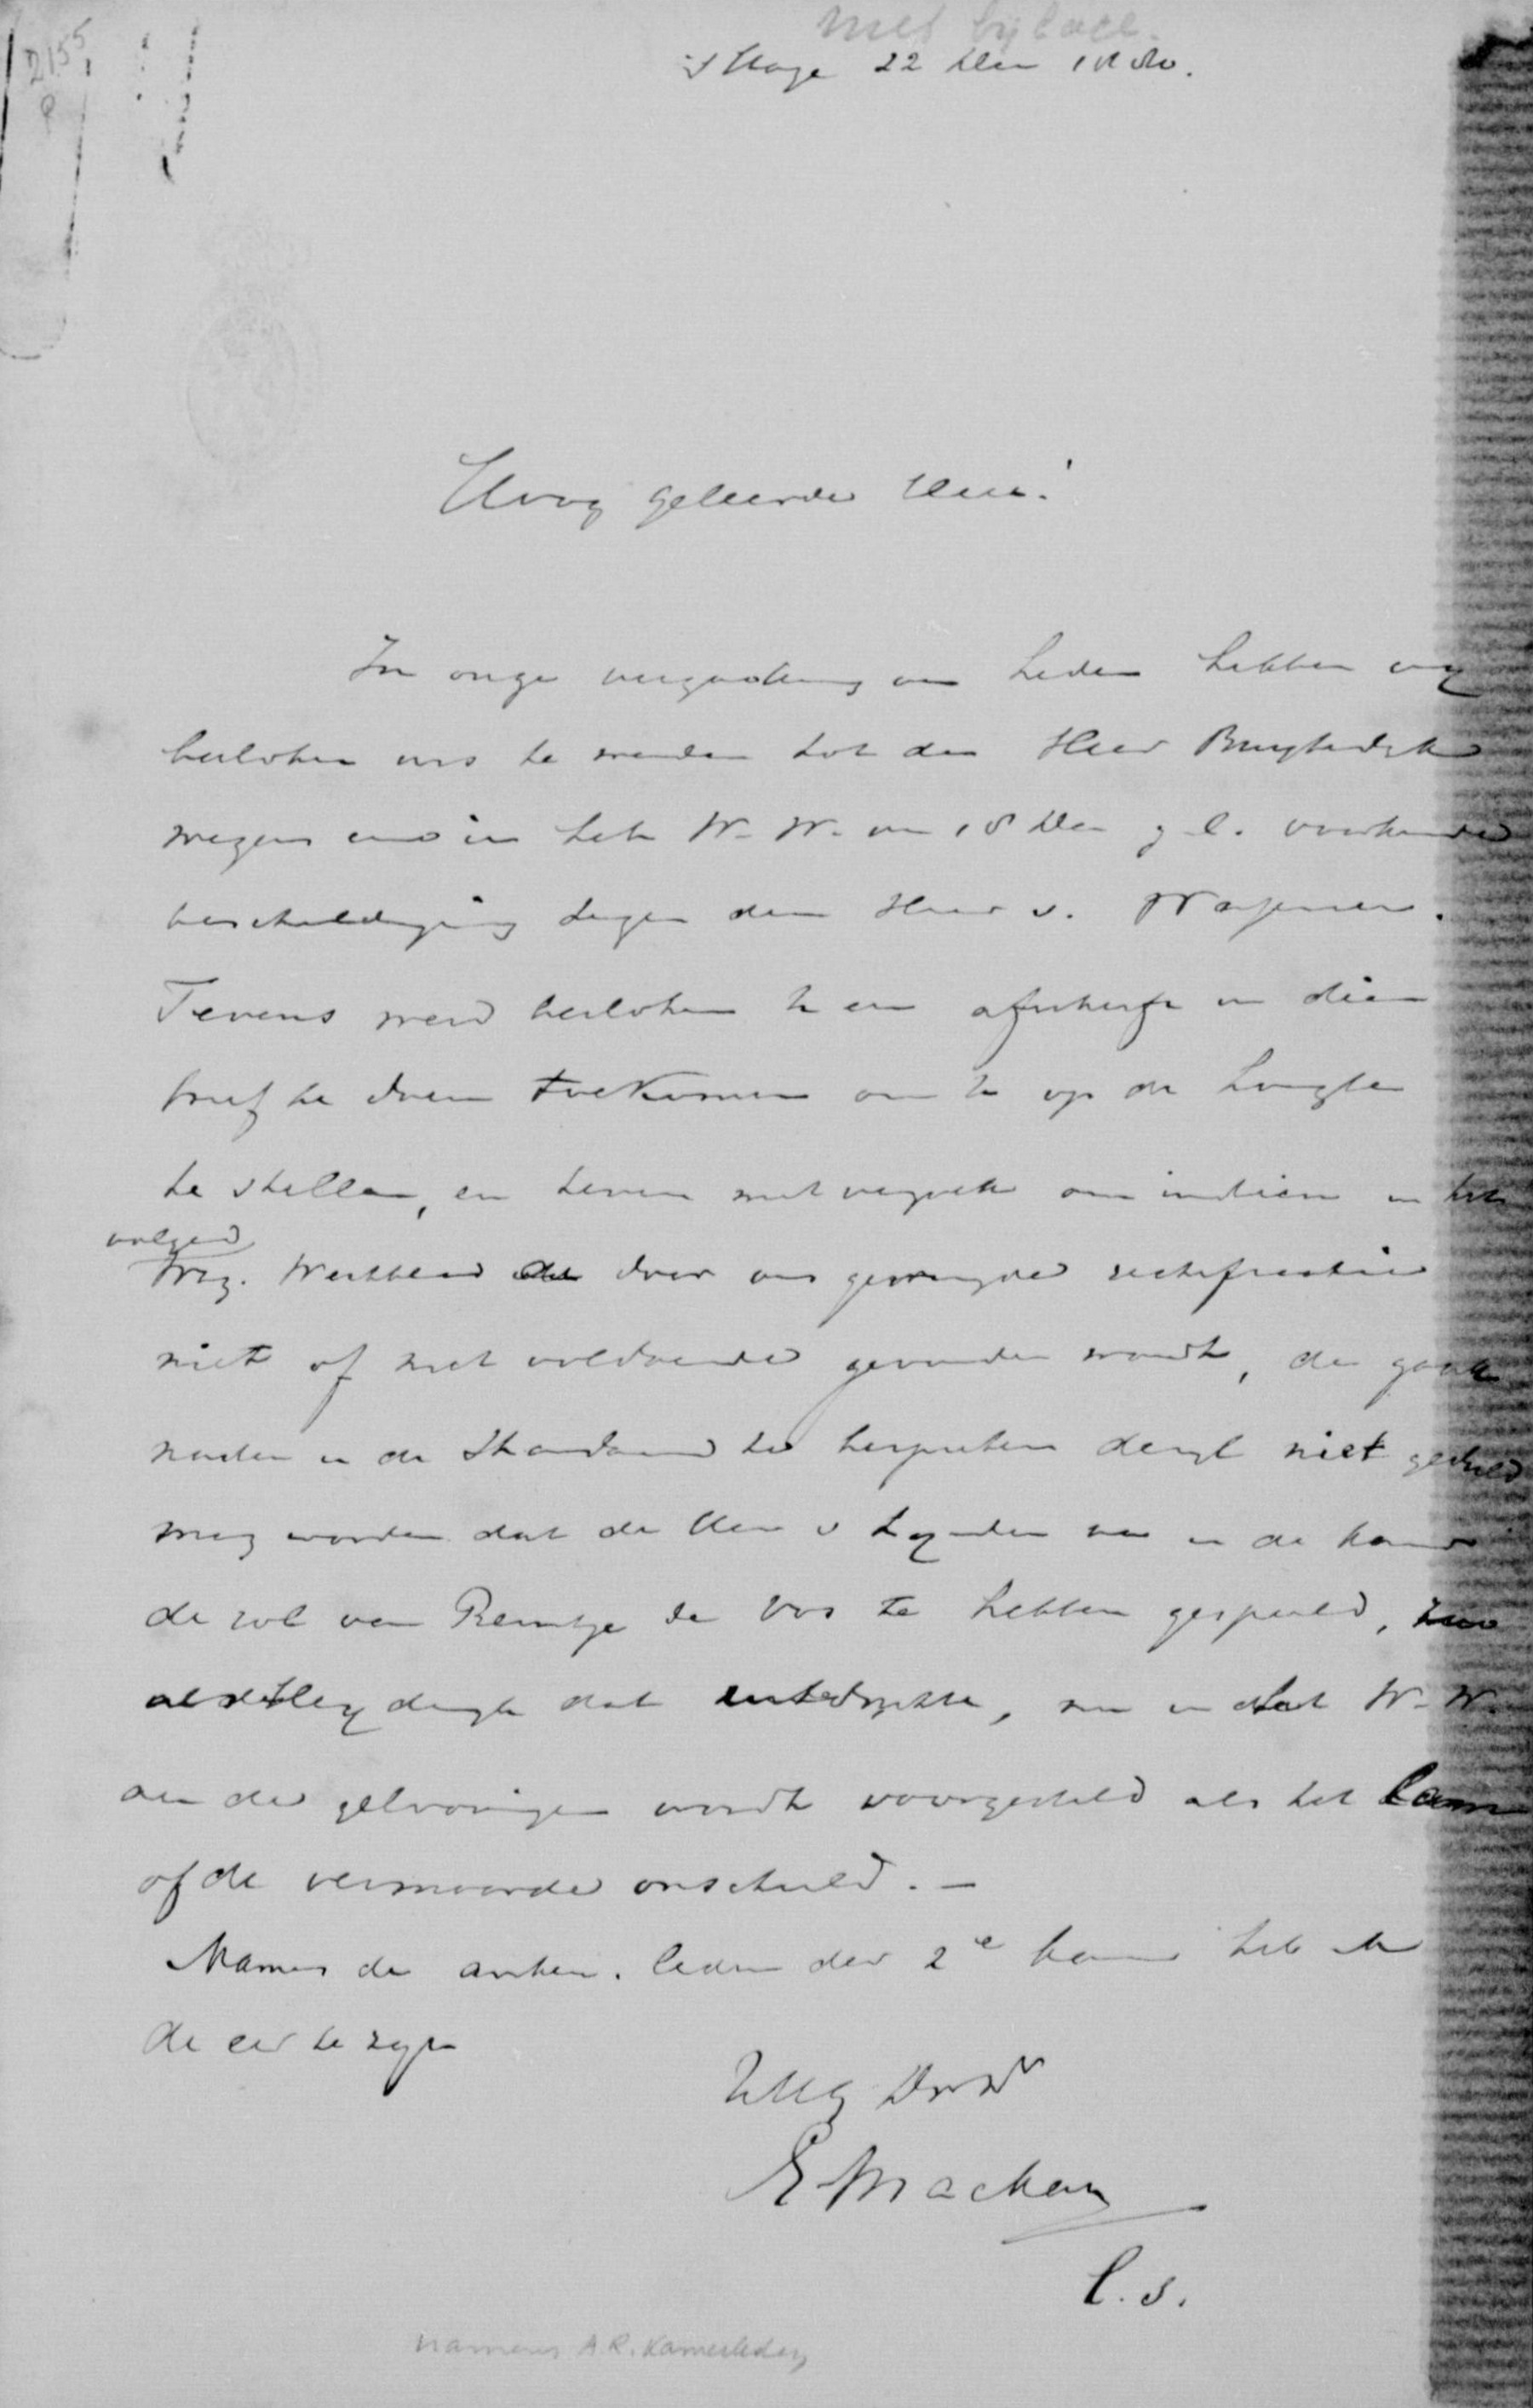 met bijlage.
D155
's Hage 22 Dec 1880.
Hoog geleerde Heer!
In onze vergadering van heden hebben wij
besloten ons te wenden tot den Heer
wegens eene in het W. W. van 18 Dec j.l.
beschuldiging tegen den Heer v. Wassenaer.
Tevens werd besloten U een afschrift van dien
brief te doen toekomen om U op de hoogte
te stellen, en tevens met verzoek om indien in het
volgend
Wag. Weekblad de door ons gevraagde rectificatie
niet of niet voldoende gevonden wordt, de
in de Standaard te bespreken daar 't niet geduld
mag worden dat de Heer v Lynden na in de kamer
de rol van Reintje de Vos te hebben gespeeld,
dat , nu in dat W. W.
aan de geloovigen wordt voorgesteld als het Lam
of de vermoorde onschuld. -
Namens de antirev. leden der 2e kamer heb ik
de eer te zijn
UHG Dwdr
E Mackay
C.s.
namens A.R. Kamerleden